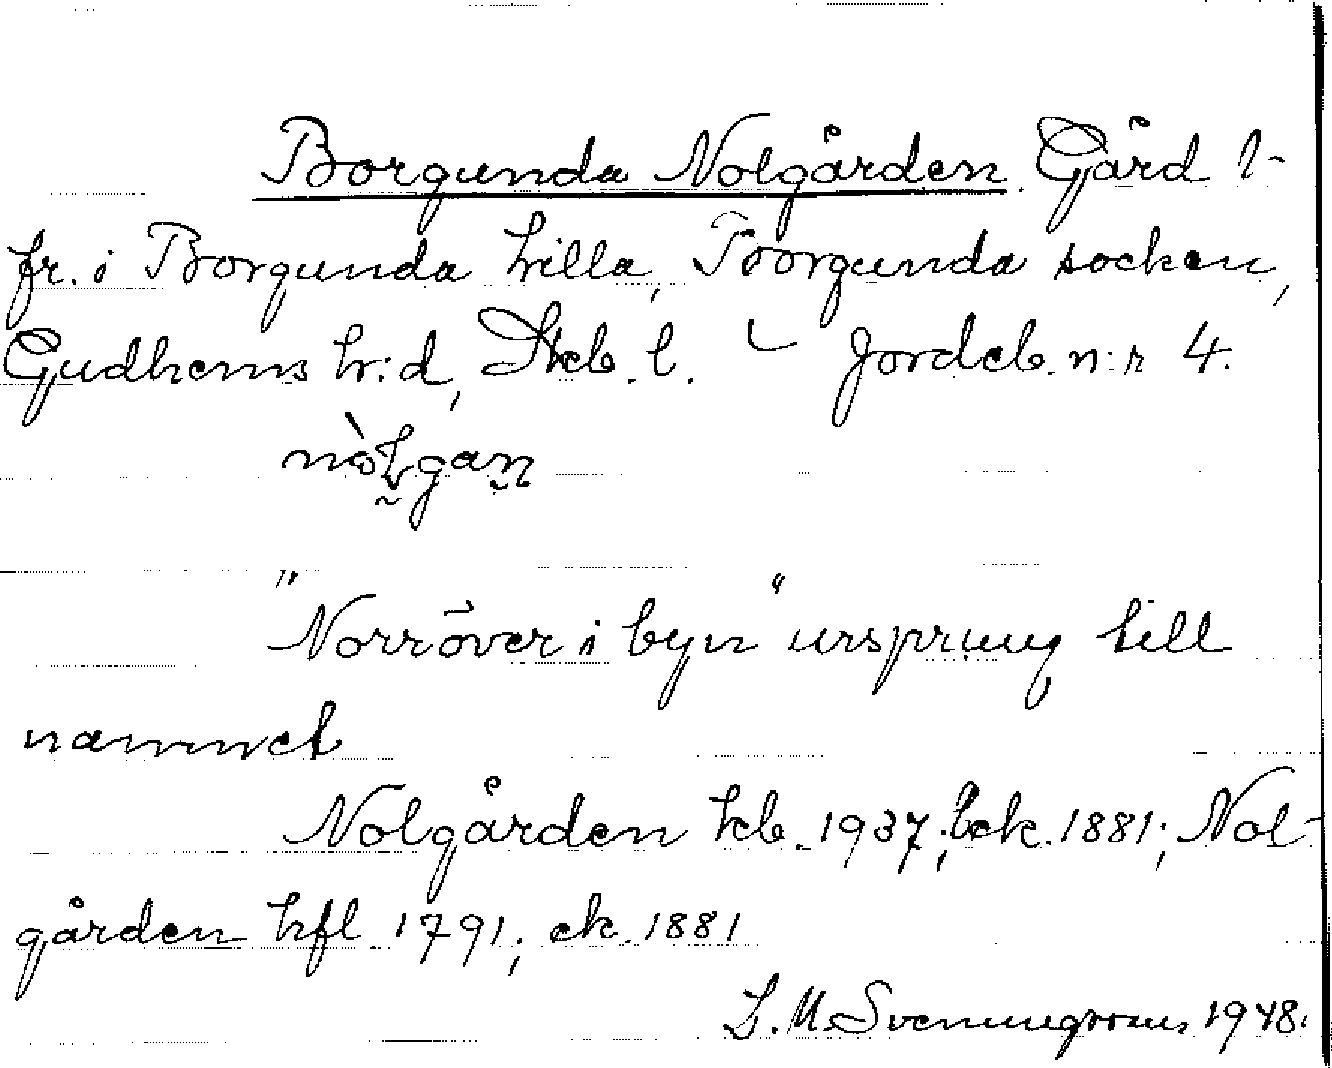 Borgunda Nolgården Gård 1-
fr. i Borgunda lilla, Borgunda socken,
Gudhems hr:d, Skb. l. Jordeb. n:r 4.
"Norröver i byn" ursprung till
namnet
Nolgården kb. 1937; ek. 1881; Nol-
gården hfl 1791; ek. 1881
L. M. Svenungsson 1948.